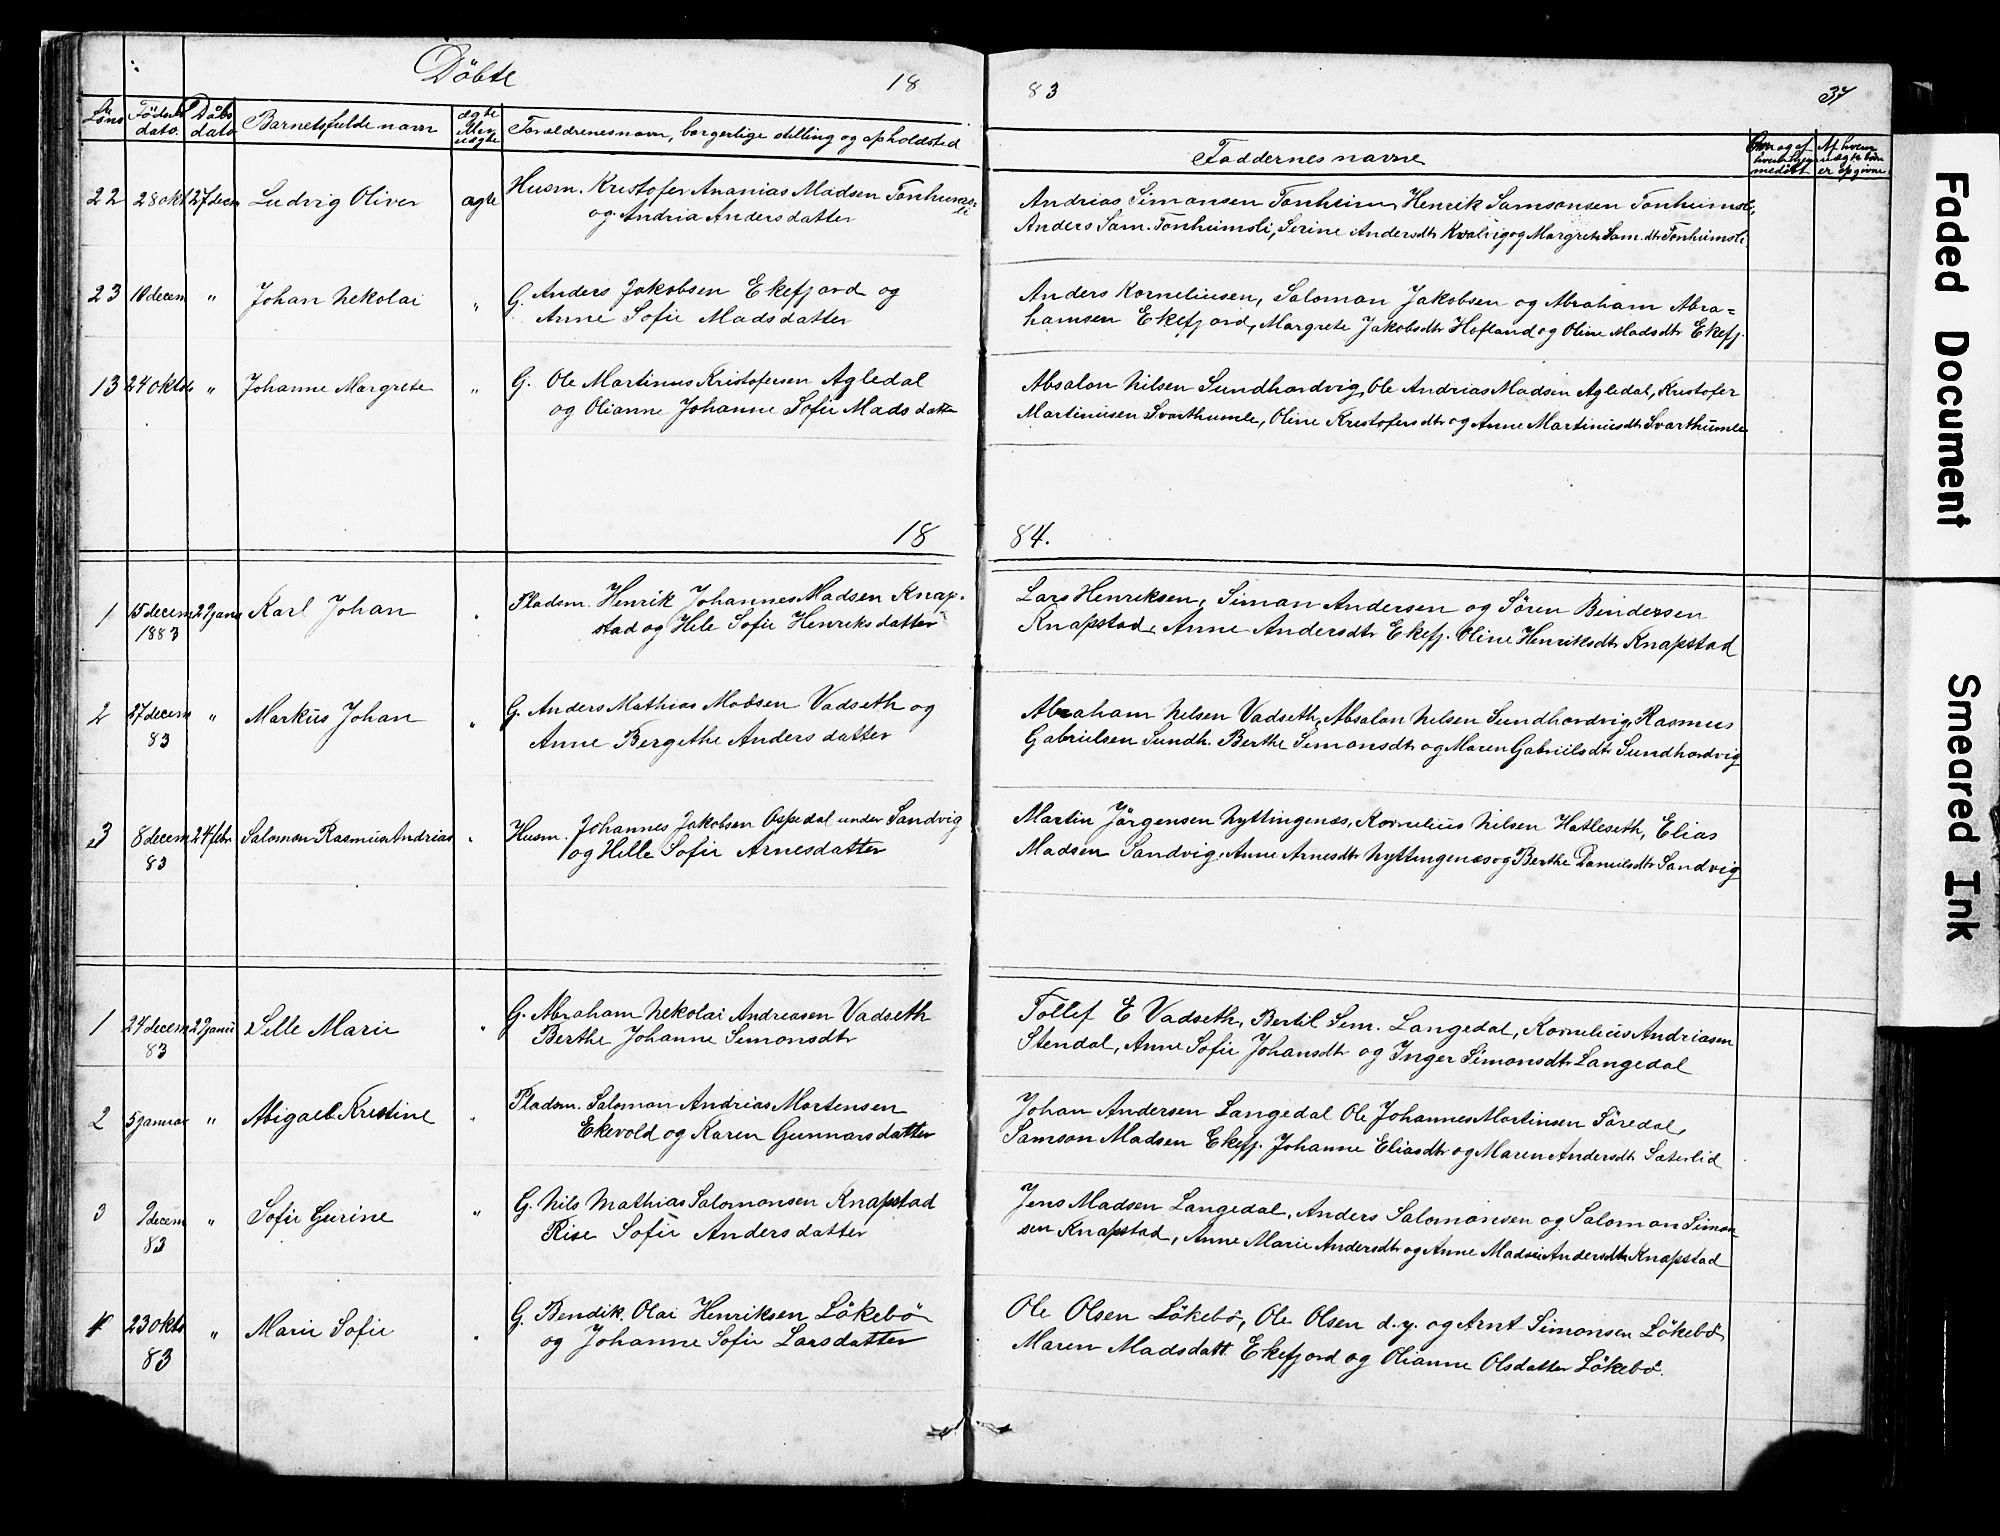 Döbte
18
83
37
Löns
Födsels dato.
Döbs dato
Barnets fulde navn
ægte eller uægte
Foreldrenes navn, borgerlige stilling og opholdsted
Faddernes navne
Om og af hvem hjemmedöbt
Af hvem uægte börn er opgivne
22 28 okt 27 decm Ludvig Oliver ægte Husm. Kristofer Ananias Madsen Tonheimsli
og Andria Andersdatter
Andrias Simonsen Tonheim, Henrik Samsonsen Tonheimsli,
Anders Sam. Tonheimsli, Serine Andersdtr Kvalvig og Margrete Sam.dtr Tonheimsli
23 10 decem " Johan Nekolai " G. Anders Jakobsen Ekefjord og
Anne Sofie Madsdatter
Anders Korneliusen, Salomon Jakobsen og Abraham Abra=
hamsen Ekefjord, Margrete Jakobsdtr Hofland og Oline Madsdtr Ekefj.
13 24 oktb " Johanne Margrete " G. Ole Martinus Kristofersen Agledal
og Olianne Johanne Sofie Madsdatter
Absalon Nilsen Sundhordvig, Ole Andrias Madsen Agledal, Kristofer
Martinusen Svarthumle, Oline Kristofersdtr og Anne Martinusdtr Svarthumle
18
84.
1 15 decem 27 janu Karl Johan " Pladsm. Henrik Johannes Madsen Knap-
1883
stad og Hele Sofie Henriksdatter
Lars Henriksen, Simon Andersen og Sören Bendersen
Knapstad, Anne Andersdtr Ekefj. Oline Henriksdtr Knapstad
2 27 decem " Markus Johan " G. Anders Mathias Madsen Vadseth og
83
Anne Bergithe Andersdatter
Abraham Nelsen Vadseth, Absalon Nilsen Sundhordvig, Rasmus
Gabrielsen Sundh. Berthe Semonsdtr og Maren Gabrielsdtr Sundhordvig
3 8 decem 24 febr Salomon Rasmus Andrias " Husm. Johannes Jakobsen Ospedal under Sandvig
83
og Hille Sofie Arnesdatter
Martin Jörgensen Nyttingenæs, Kornelius Nilsen Hatleseth, Elias
Madsen Sandvig, Anne Arnesdtr Nyttingenæs og Berthe Danielsdtr Sandvig
1 24 decem 27 janu Sille Marie " G. Abraham Nekolai Andreasen Vadseth
83
Berthe Johanne Semonsdtr
Tollef E Vadseth, Bertil Sem. Langedal, Kornelius Andriasen
Stendal, Anne Sofie Johansdtr og Inger Simonsdtr Langedal
2 5 januar " Abigael Kristine " Pladsm. Salomon Andrias Mortensen
Ekevold og Karen Gunnarsdatter
Johan Andersen Langedal Ole Johannes Martinsen Söredal,
Samson Madsen Ekefj. Johanne Eliasdtr og Maren Andersdtr Sæterlid
3 9 decem " Sofie Gurine " G. Nils Mathias Salomonsen Knapstad
83
Rise Sofie Andersdatter
Jens Madsen Langedal, Anders Salomonsen og Salomon Simon-
sen Knapstad, Anne Marie Andersdtr og Anne Madsie Andersdtr Knapstad
4 23 okto " Marie Sofie " G. Bendik Olai Henriksen Lökebö
83
og Johanne Sofie Larsdatter
Ole Olsen Lökebö, Ole Olsen d.y. og Arnt Simonsen Lökebö
Maren Madsdatt. Ekefjord og Olianne Olsdatter Lökebö.
Faded Document
Smeared Ink